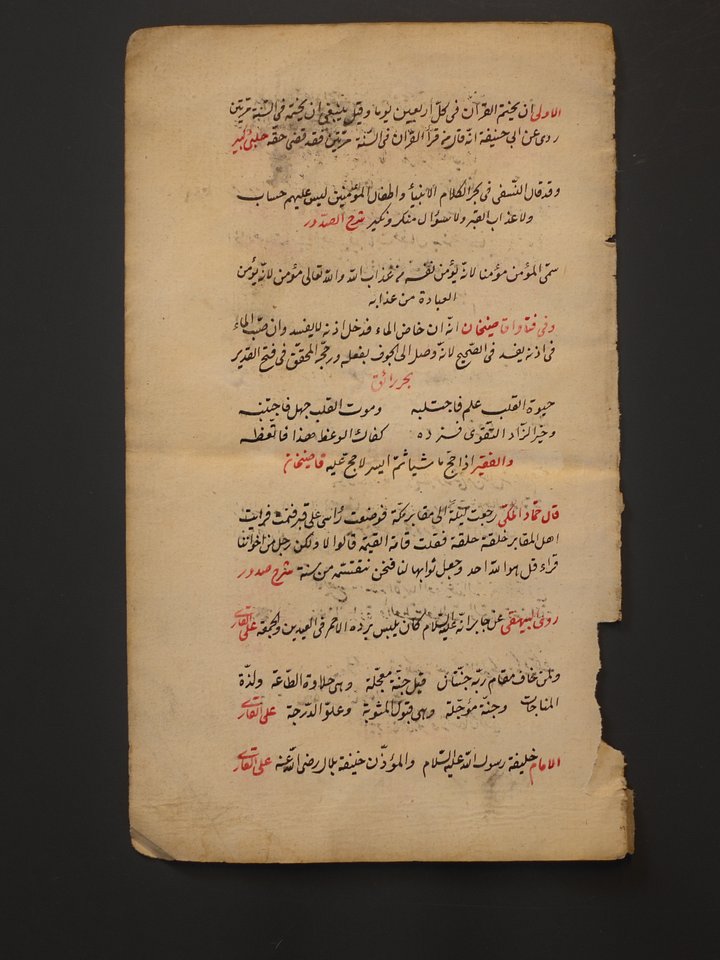 الاولى ان يختم القرآن فى كل أربعين يوما وقيل ينبغى ان يختمه فى السنة مرتين
روى عن ابى حنيفة انه قال من قرأ القرآن فى السنة مرتين فقد قضى حقه حلبى كبير
وقد قال النسفى فى بحر الكلام الانبياء واطفال المؤمنين ليس عليهم حساب
ولا عذاب القبر ولا سؤال منكر ونكير شرح الصدور
سمى المؤمن مؤمنا لانه يؤمن نفسه من عذاب الله والله تعالى مؤمن لانه يؤمن
العبادة من عذابه
وفى فتاوا قاضيخان انه ان خاض الماء فدخل اذنه لا يفسد وان صب الماء
فى اذنه يفسد فى الصحيح لانه وصل الى الجوف بفعله ورجحه المحقق فى فتح القدير
بحر رائق
حيوة القلب علم فاجتلبه وموت القلب جهل فاجتنبه
وخير الزاد التقوى فزده كفاك الوعظ هذا فاتعظه
والفقير اذا حج ماشيا ثم ايسر لا حج عليه قاضيخان
قال حماد المكى رجعت ليلة الى مقابر مكة فوضعت رأسى على قبر فنمت فرايت
اهل المقابر حلقة حلقة فقلت قامة القيمة قالوا لا ولكن رجل من اخواننا
قراء قل هو الله احد وجعل ثوابها لنا فنحن نقتسمه من سنة شرح صدور
روى البيهقى عن جابر انه عليه السلام كان يلبس برده الاحمر فى العيدين والجمعة على القارى
ولمن خاف مقام ربه جنتان قيل جنة معجلة وهى حلاوة الطاعة ولذة
المناجات وجنة مؤجلة وهى قبول المثوبة وعلو الدرجة على القارى
الامام خليفة رسول الله عليه السلام والمؤذن خليفة بلال رضى الله عنه على القارى